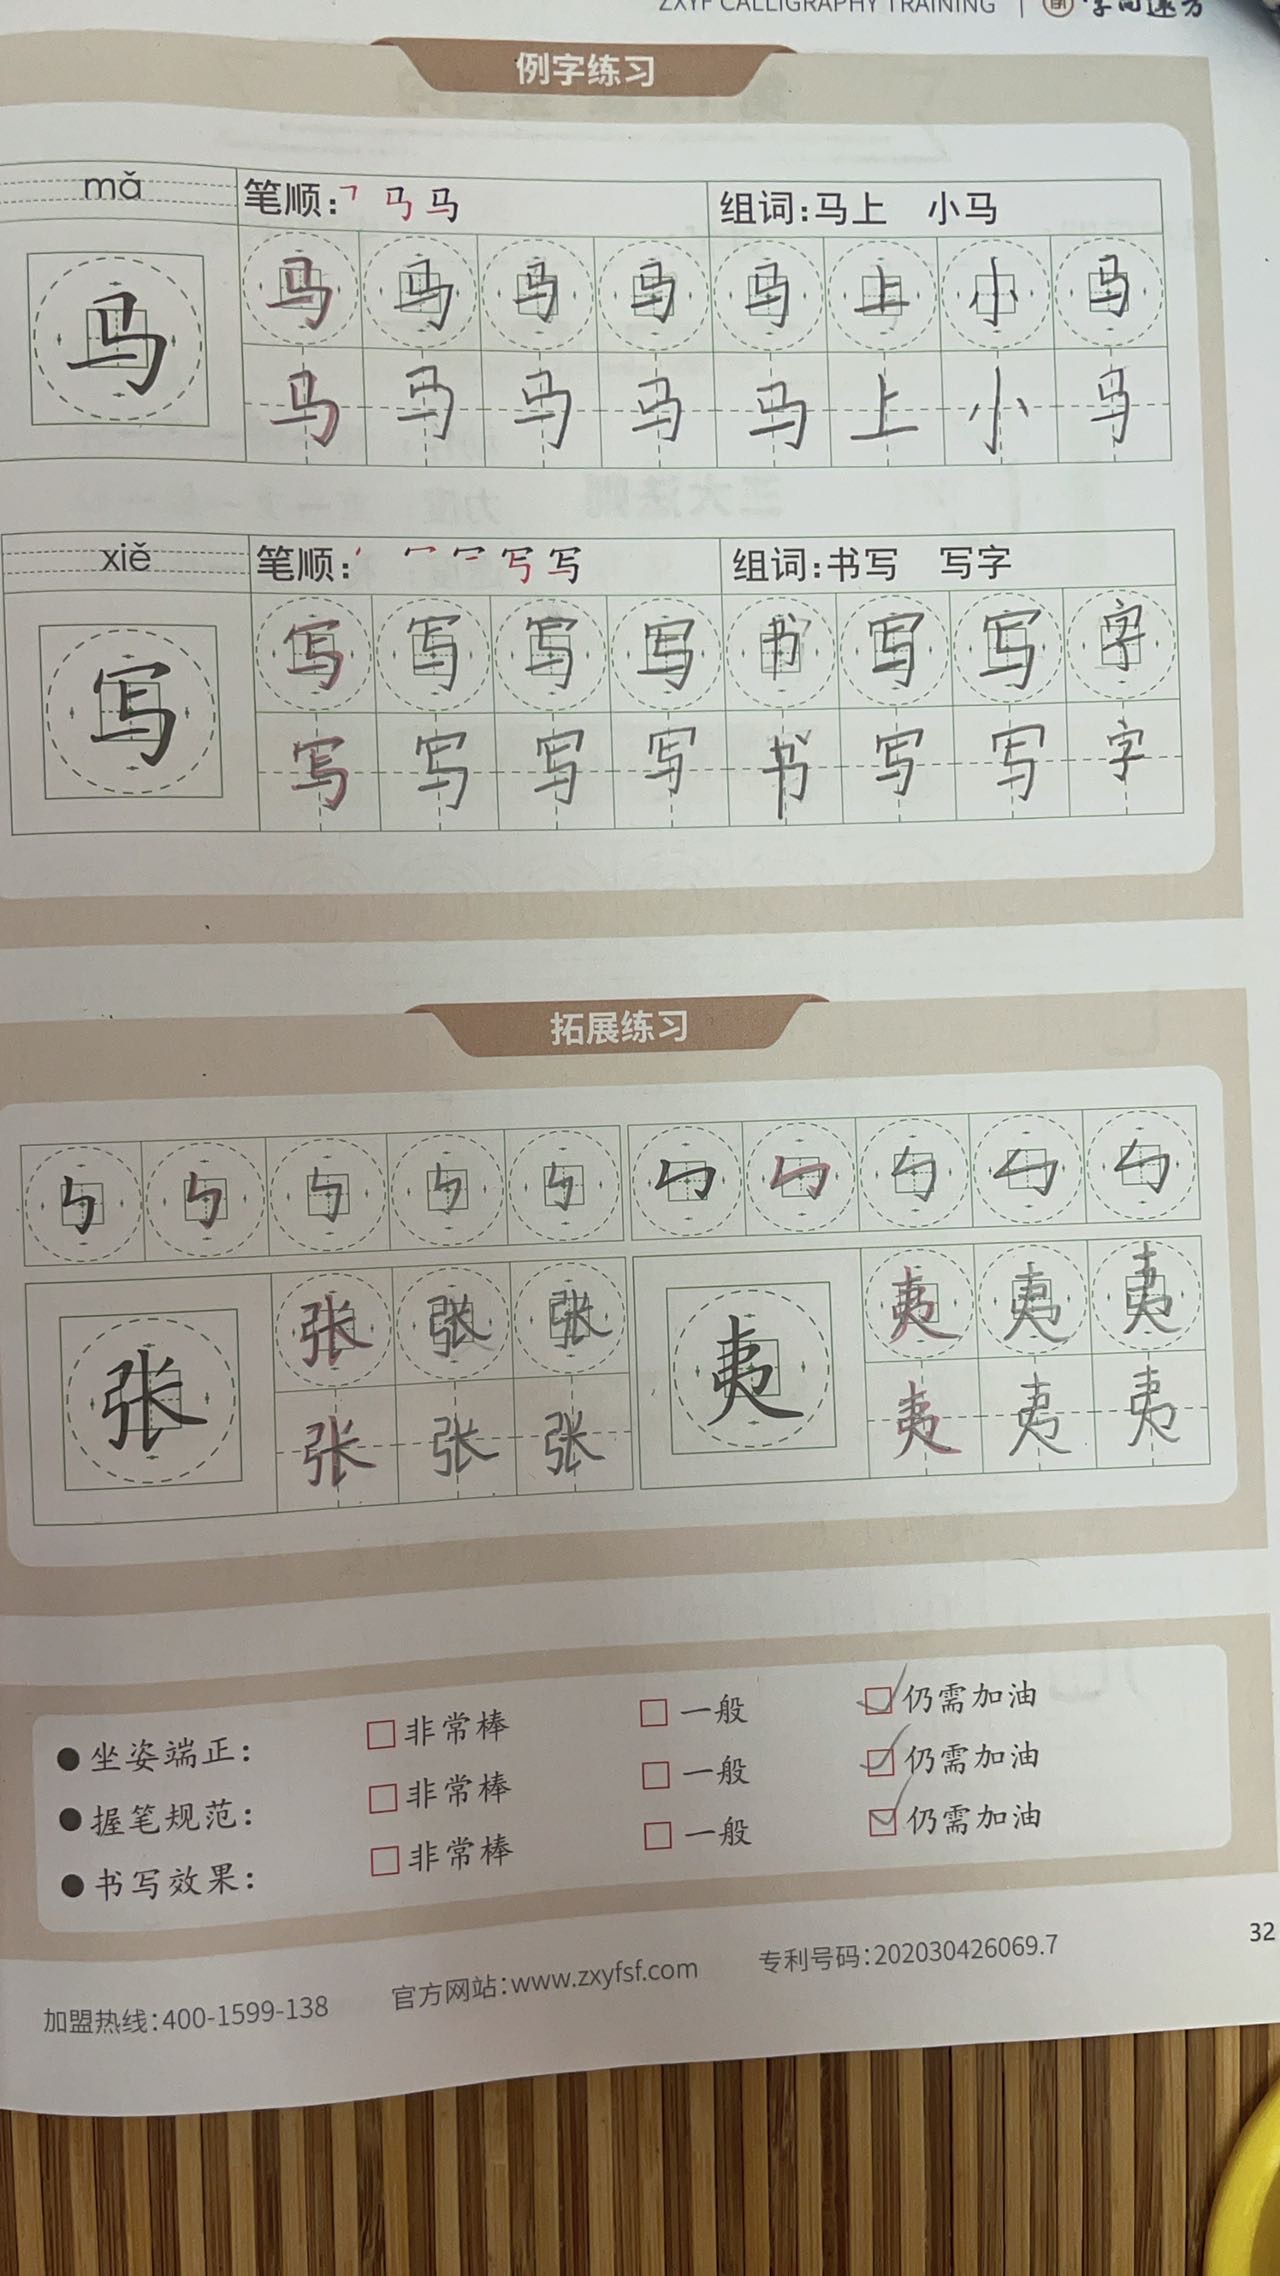 ZXYF CALLIGRAPHY TRAINING | 字向速方
例字练习
mǎ 笔顺: 马 马 组词:马上 小马
马 马 马 马 马 马 上 小 马
马 马 马 马 马 上 小 马
xiě 笔顺: 写 写 组词:书写 写字
写 写 写 写 写 书 写 写 字
写 写 写 写 书 写 写 字
拓展练习
张 张 张 张 夷 夷 夷 夷
张 张 张 夷 夷 夷
●坐姿端正: □非常棒 □一般 ☑仍需加油
●握笔规范: □非常棒 □一般 ☑仍需加油
●书写效果: □非常棒 □一般 ☑仍需加油
加盟热线:400-1599-138 官方网站:www.zxyfsf.com 专利号码:202030426069.7
32